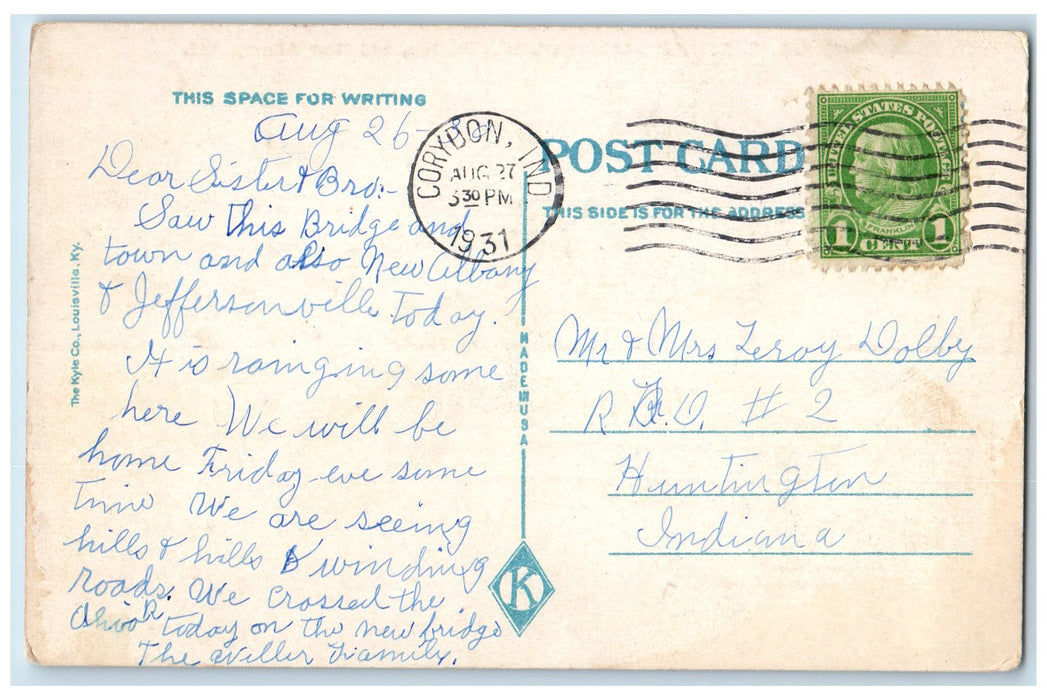 THIS SPACE FOR WRITING
Aug 26-
Dear Sister & Bro:-
Saw this Bridge and
town and also New Albany
& Jeffersonville today.
It is rainging some
here We will be
home Friday eve some
time We are seeing
hills & hills & winding
roads. We Crossed the
Ohio R today on the new bridge
The Family.
The Kyle Co., Louisville, Ky.
MADE IN USA
K
CORYDON, IND
AUG 27
30 PM
1931
POST CARD
THIS SIDE IS FOR THE ADDRESS
UNITED STATES POSTAGE
FRANKLIN
1 CENT 1
Mr & Mrs Leroy Dolby
R.F.D. # 2
Huntington
Indiana